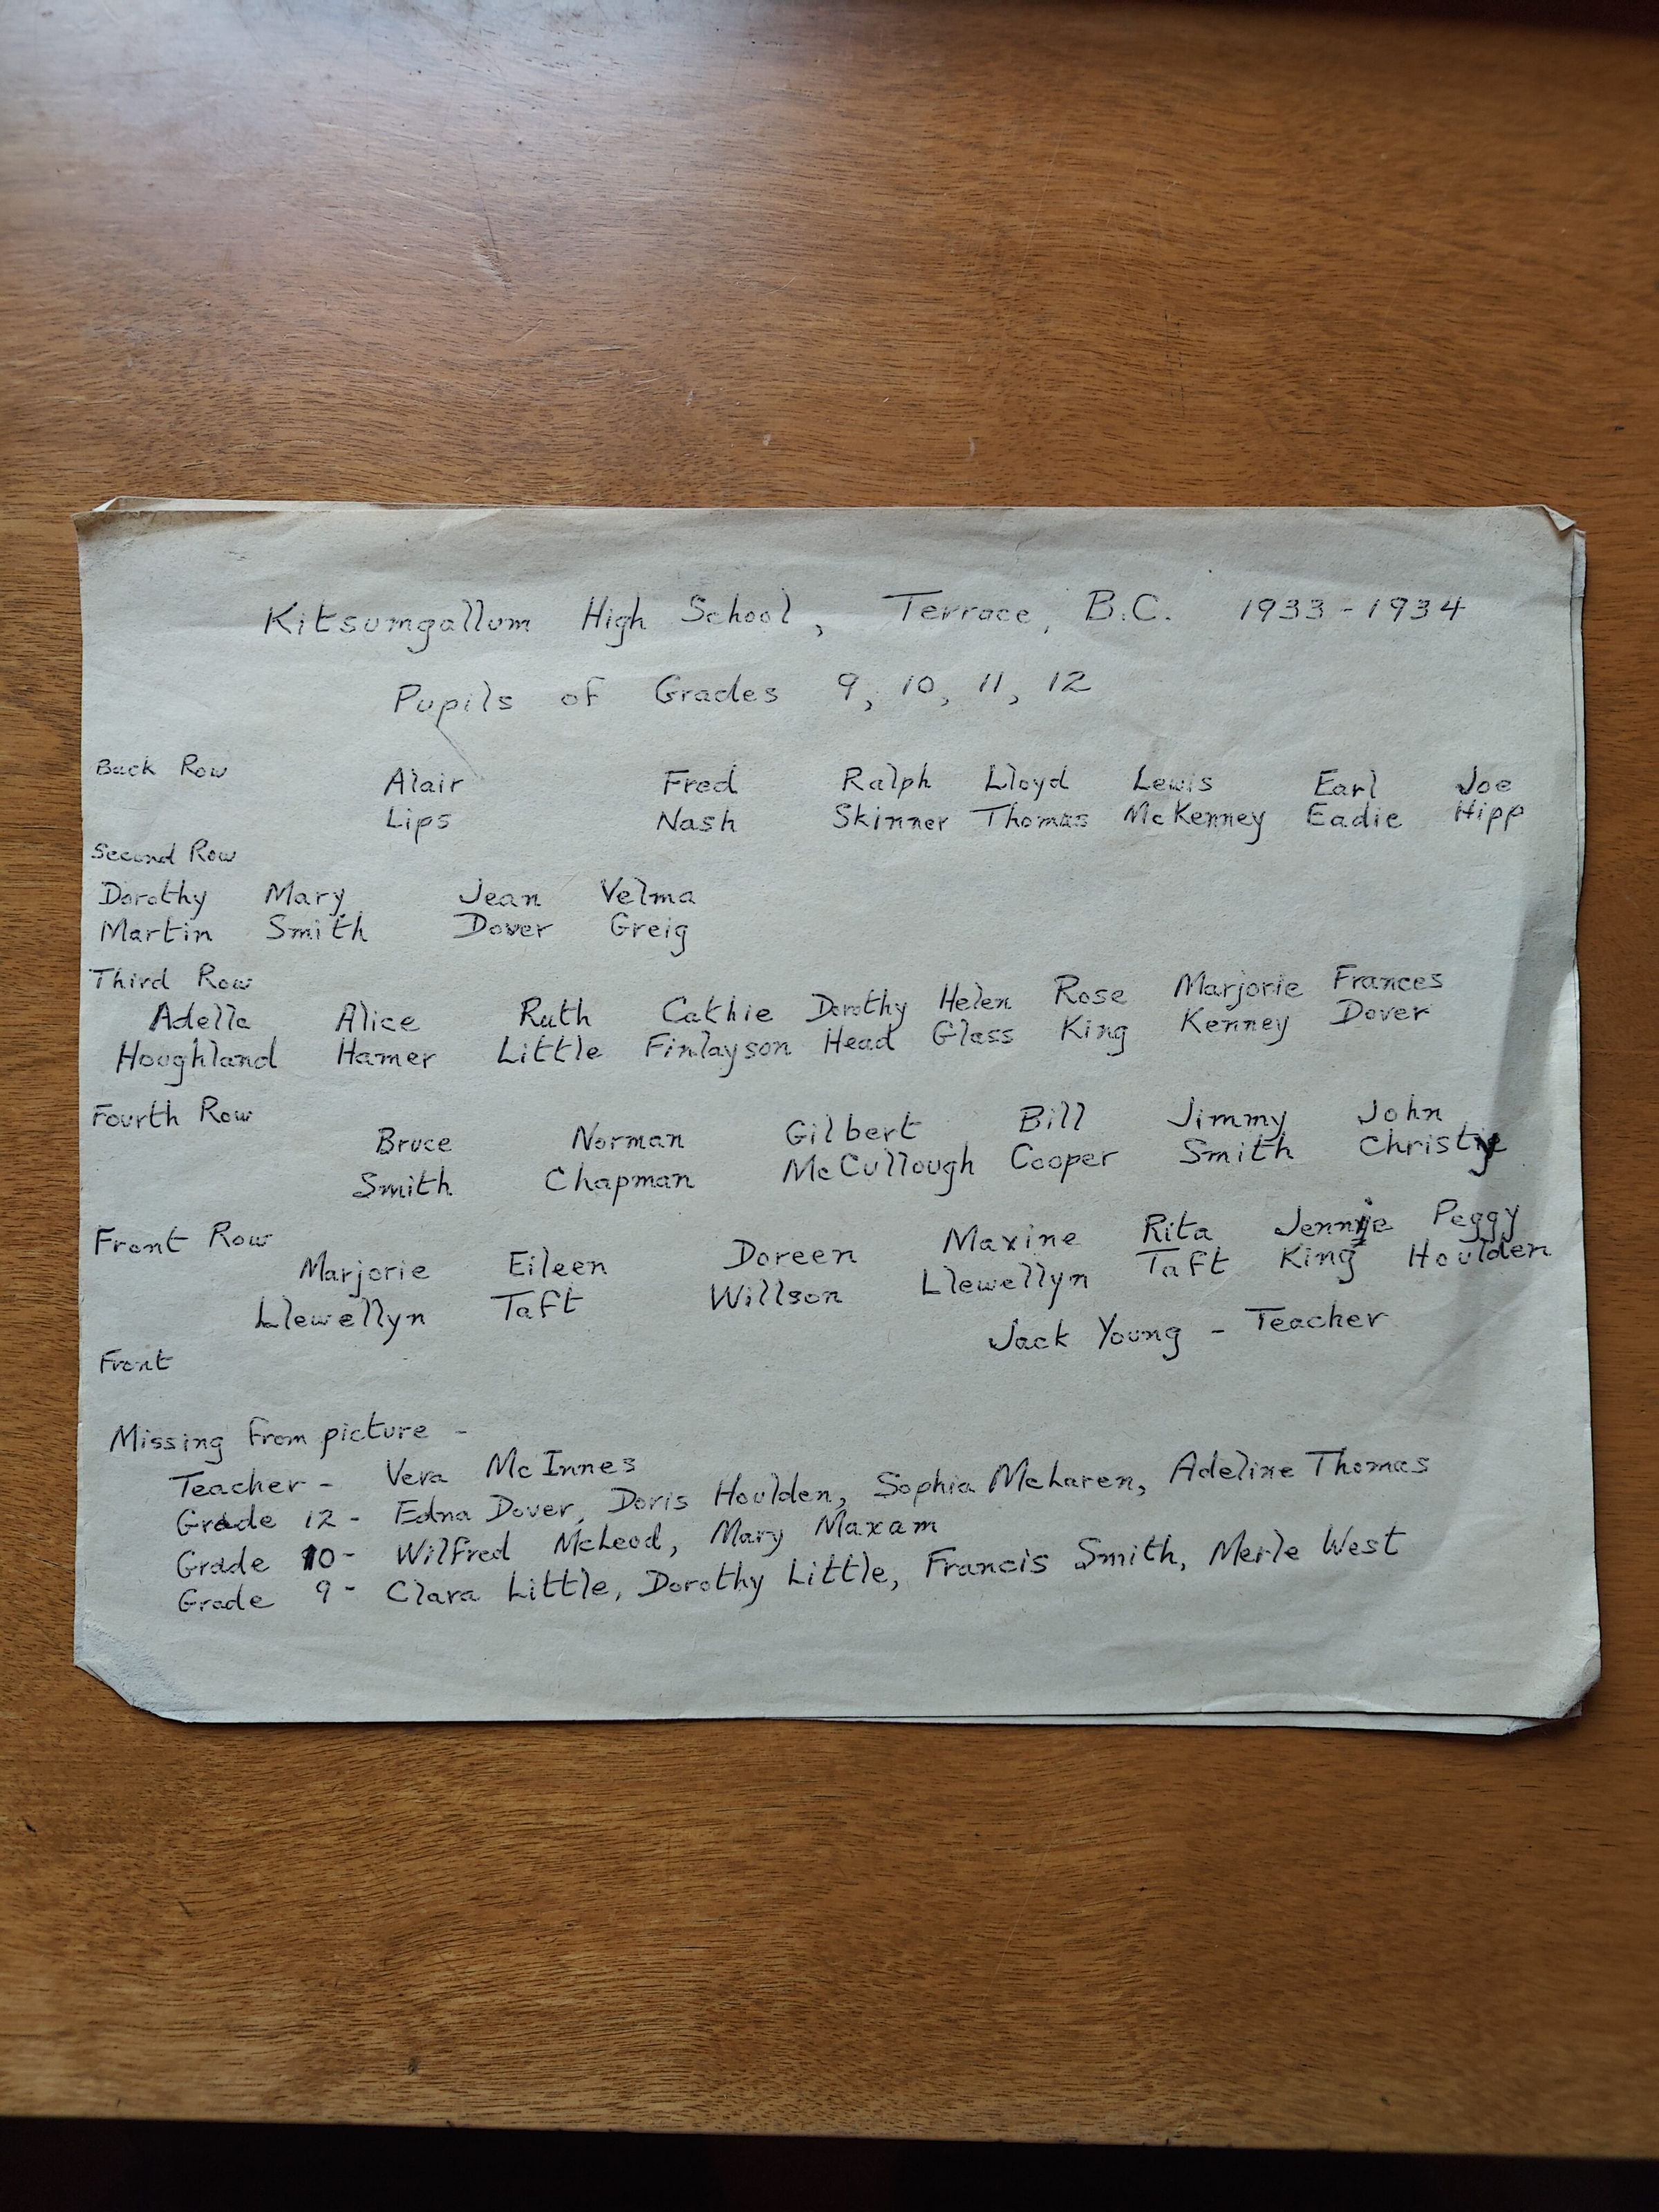 Kitsumgallum High School, Terrace, B.C. 1933-1934
Pupils of Grades 9, 10, 11, 12
Back Row
Alair Fred Ralph Lloyd Lewis Earl Joe
Lips Nash Skinner Thomas McKenney Eadie Hipp
Second Row
Dorothy Mary Jean Velma
Martin Smith Dover Greig
Third Row
Adella Alice Ruth Cathie Dorothy Helen Rose Marjorie Frances
Houghland Hamer Little Finlayson Head Glass King Kenney Dover
Fourth Row
Bruce Norman Gilbert Bill Jimmy John
Smith Chapman McCullough Cooper Smith Christy
Front Row
Marjorie Eileen Doreen Maxine Rita Jennie Peggy
Llewellyn Taft Willson Llewellyn Taft King Houlden
Jack Young - Teacher
Front
Missing from picture -
Teacher - Vera McInnes
Grade 12 - Edna Dover, Doris Houlden, Sophia McLaren, Adeline Thomas
Grade 10 - Wilfred McLeod, Mary Maxam
Grade 9 - Clara Little, Dorothy Little, Francis Smith, Merle West